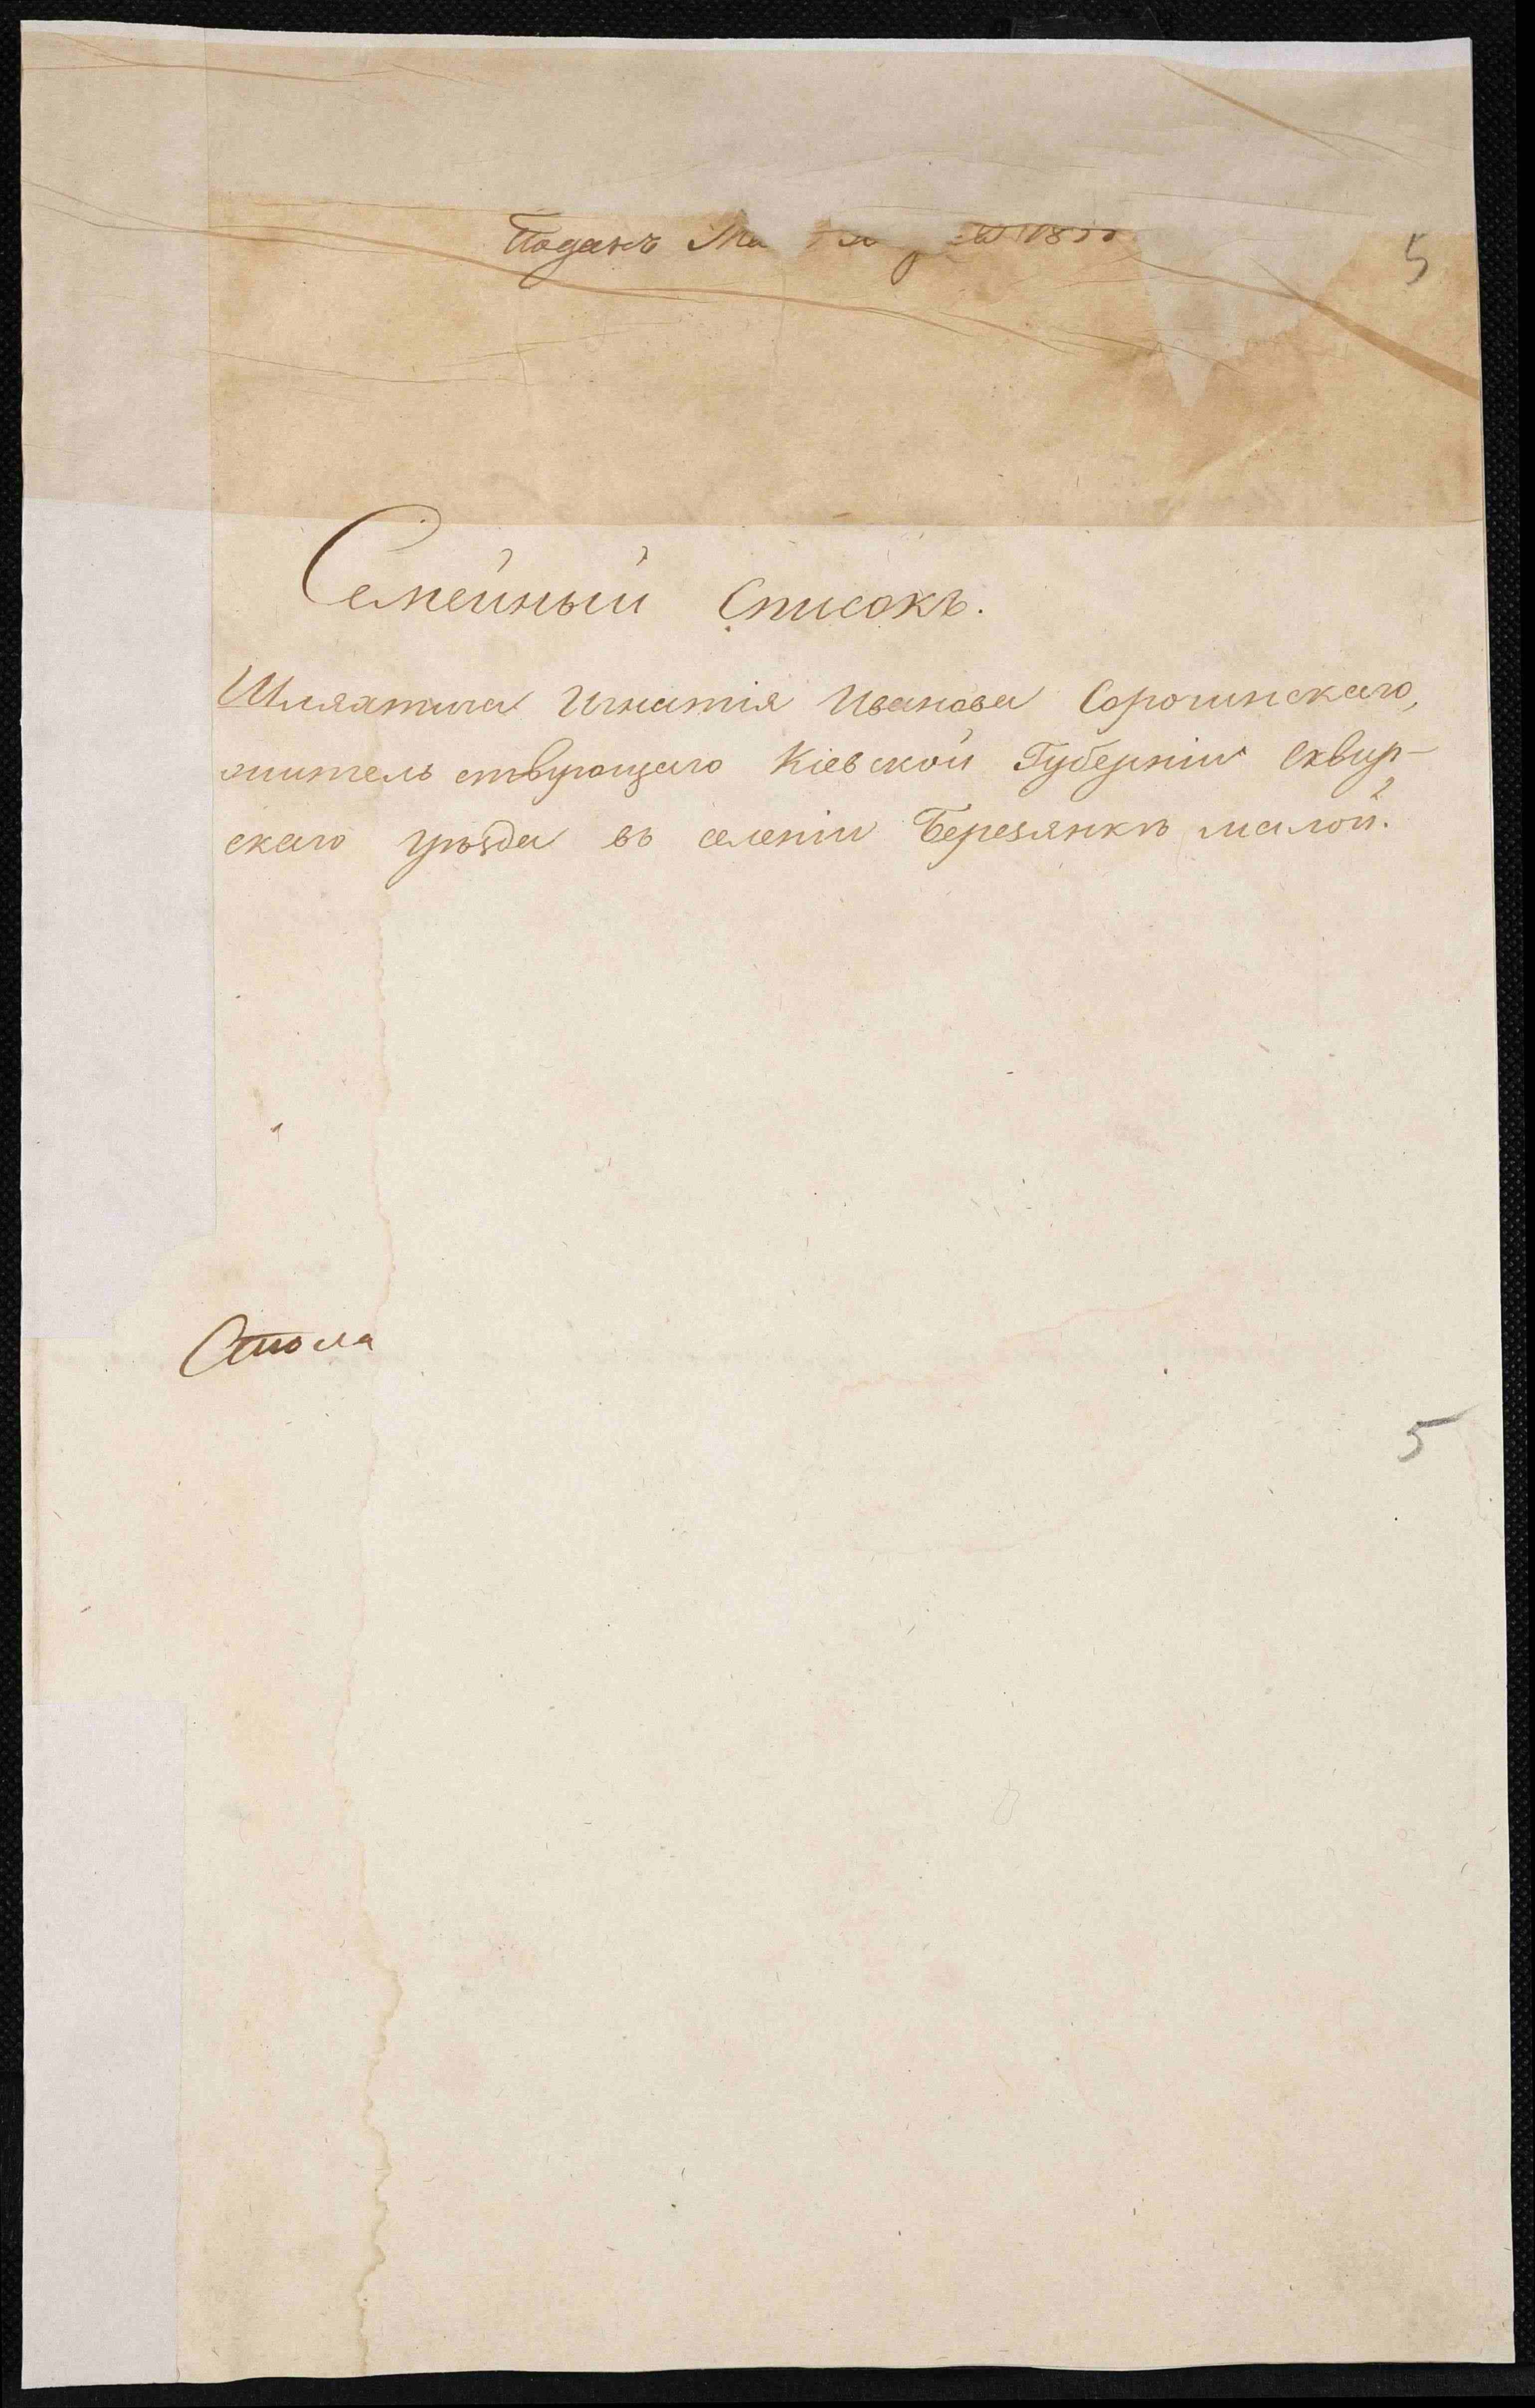 Поданъ Ма
5
Семейный Списокъ.
Шляхтича Игнатія Иванова Сорочинскаго,
жительствующаго Кіевской Губерніи Сквир-
скаго уѣзда въ селеніи Березянкѣ малой.
Стола
5